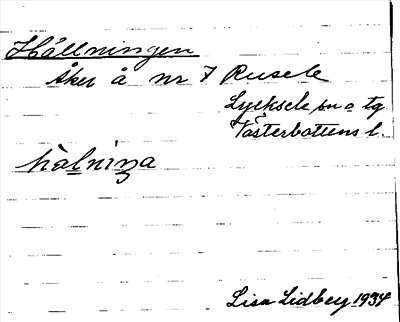 Hällningen
Åker å nr 7 Rusele
Lycksele sn o tg
Västerbottens l.
hälniŋa
Lisa Lidberg 1934